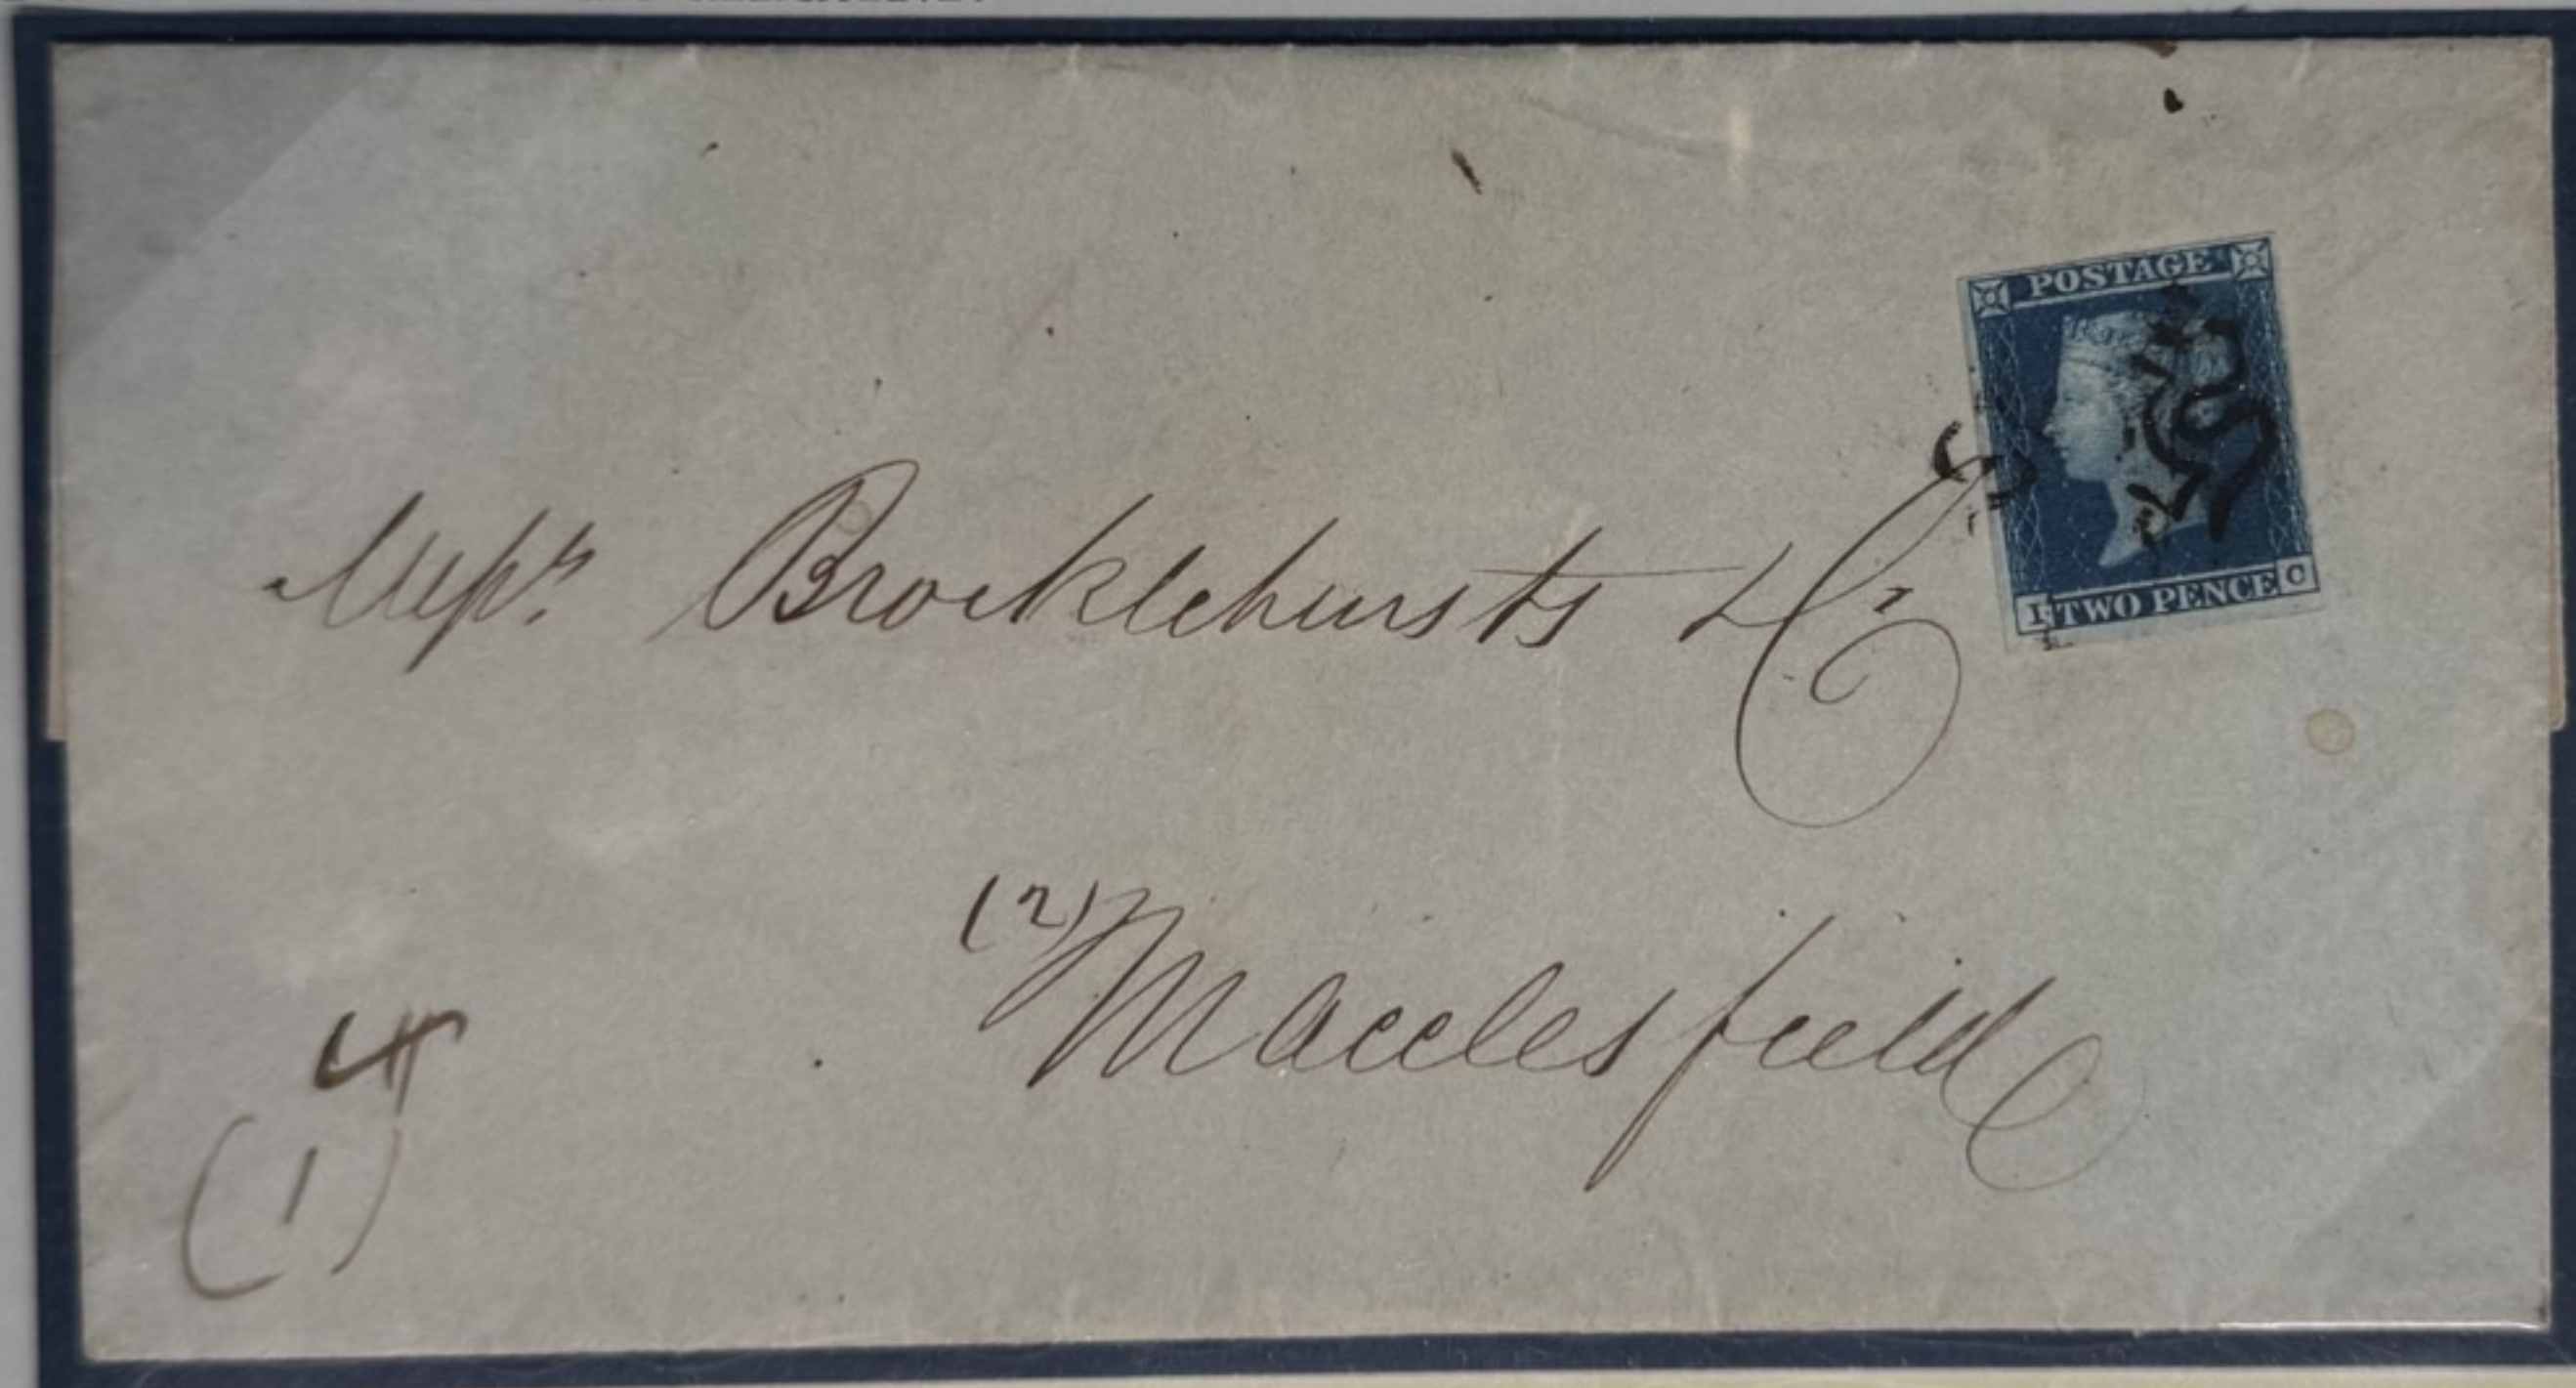 POSTAGE
TWO PENCE C
Messrs Brocklehursts & Co
(2)
Macclesfield
4
(1)